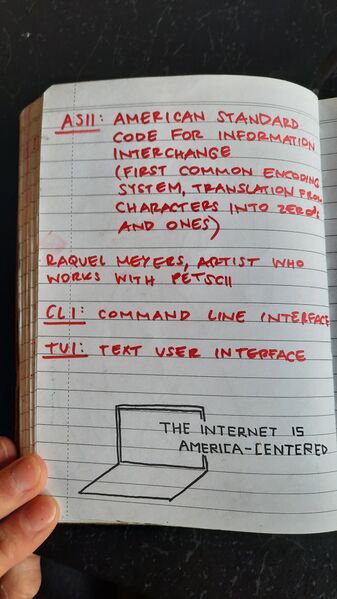 ASII: AMERICAN STANDARD
CODE FOR INFORMATION
INTERCHANGE
(FIRST COMMON ENCODING
SYSTEM, TRANSLATION FROM
CHARACTERS INTO ZEROES
AND ONES)
RAQUEL MEYERS, ARTIST WHO
WORKS WITH PETSCII
CLI: COMMAND LINE INTERFACE
TUI: TEXT USER INTERFACE
THE INTERNET IS
AMERICA-CENTERED